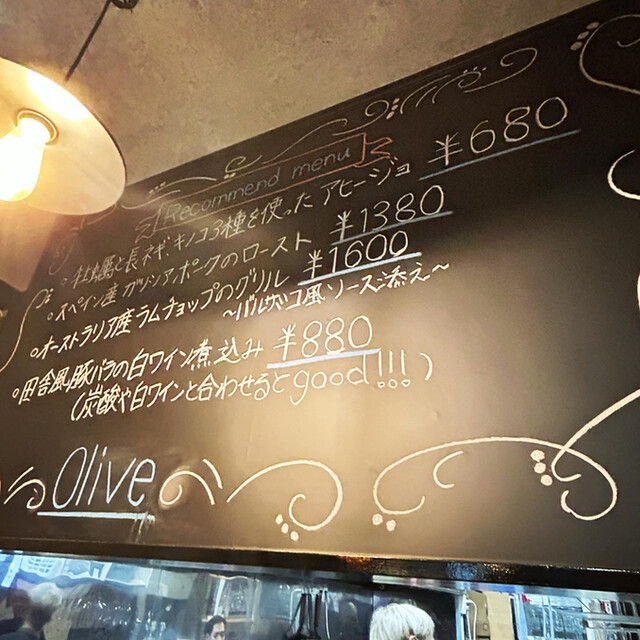 Recommend menu
・牡蠣と長ネギ、キノコ3種を使った アヒージョ ¥680
・スペイン産 ガリシアポークのロースト ¥1380
・オーストラリア産ラムチョップのグリル ¥1600
～バルサミコ風ソース添え～
・田舎風豚バラの白ワイン煮込み ¥880
(炭酸や白ワインと合わせるとgood!!!)
Olive